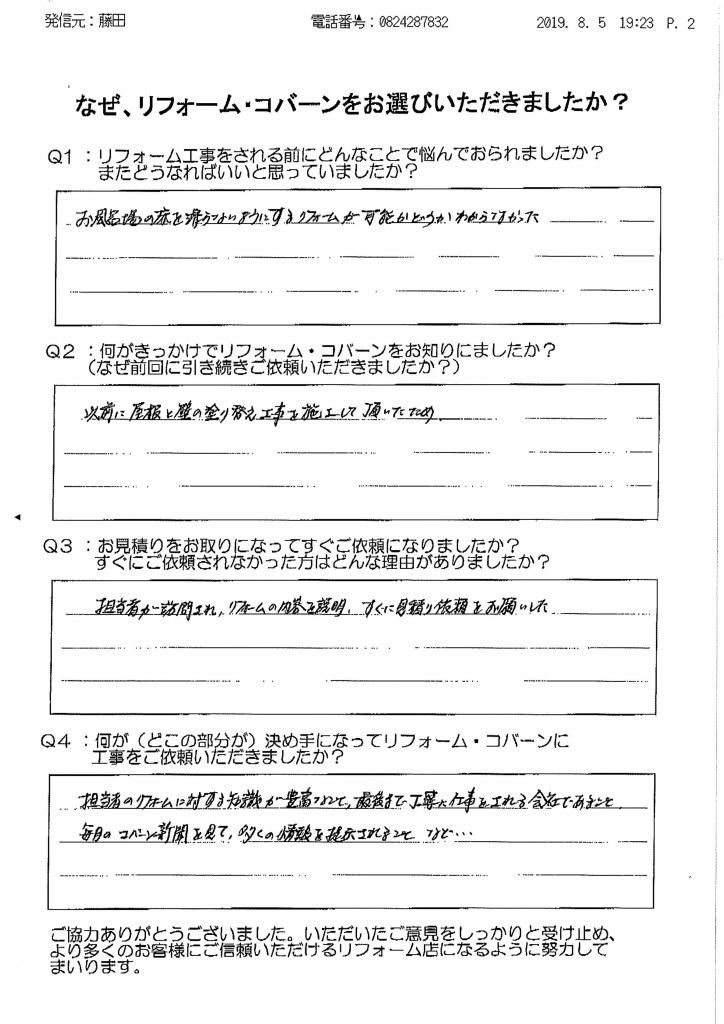 発信元：藤田 電話番号：0824287832 2019. 8. 5 19:23 P. 2
なぜ、リフォーム・コバーンをお選びいただきましたか？
Q1 ：リフォーム工事をされる前にどんなことで悩んでおられましたか？
またどうなればいいと思っていましたか？
お風呂場の床を滑らないようにするリフォームが可能かどうかわからなかった
Q2 ：何がきっかけでリフォーム・コバーンをお知りにましたか？
（なぜ前回に引き続きご依頼いただきましたか？）
以前に屋根と壁の塗り替え工事を施工して頂いたため
Q3 ：お見積りをお取りになってすぐご依頼になりましたか？
すぐにご依頼されなかった方はどんな理由がありましたか？
担当者が訪問され，リフォームの内容を説明，すぐに見積り依頼をお願いした
Q4 ：何が（どこの部分が）決め手になってリフォーム・コバーンに
工事をご依頼いただきましたか？
担当者のリフォームに対する知識が豊富なこと，最後まで丁寧な仕事をされる会社であること，
毎月のコバーン新聞を見て，多くの情報を提示されること など…
ご協力ありがとうございました。いただいたご意見をしっかりと受け止め、
より多くのお客様にご信頼いただけるリフォーム店になるように努力して
まいります。